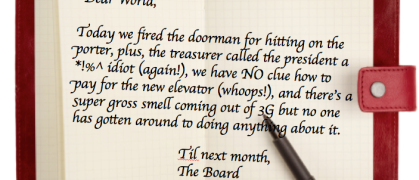 Dear World,
Today we fired the doorman for hitting on the
porter, plus, the treasurer called the president a
*!%^ idiot (again!), we have NO clue how to
pay for the new elevator (whoops!), and there's a
super gross smell coming out of 3G but no one
has gotten around to doing anything about it.
Til next month,
The Board